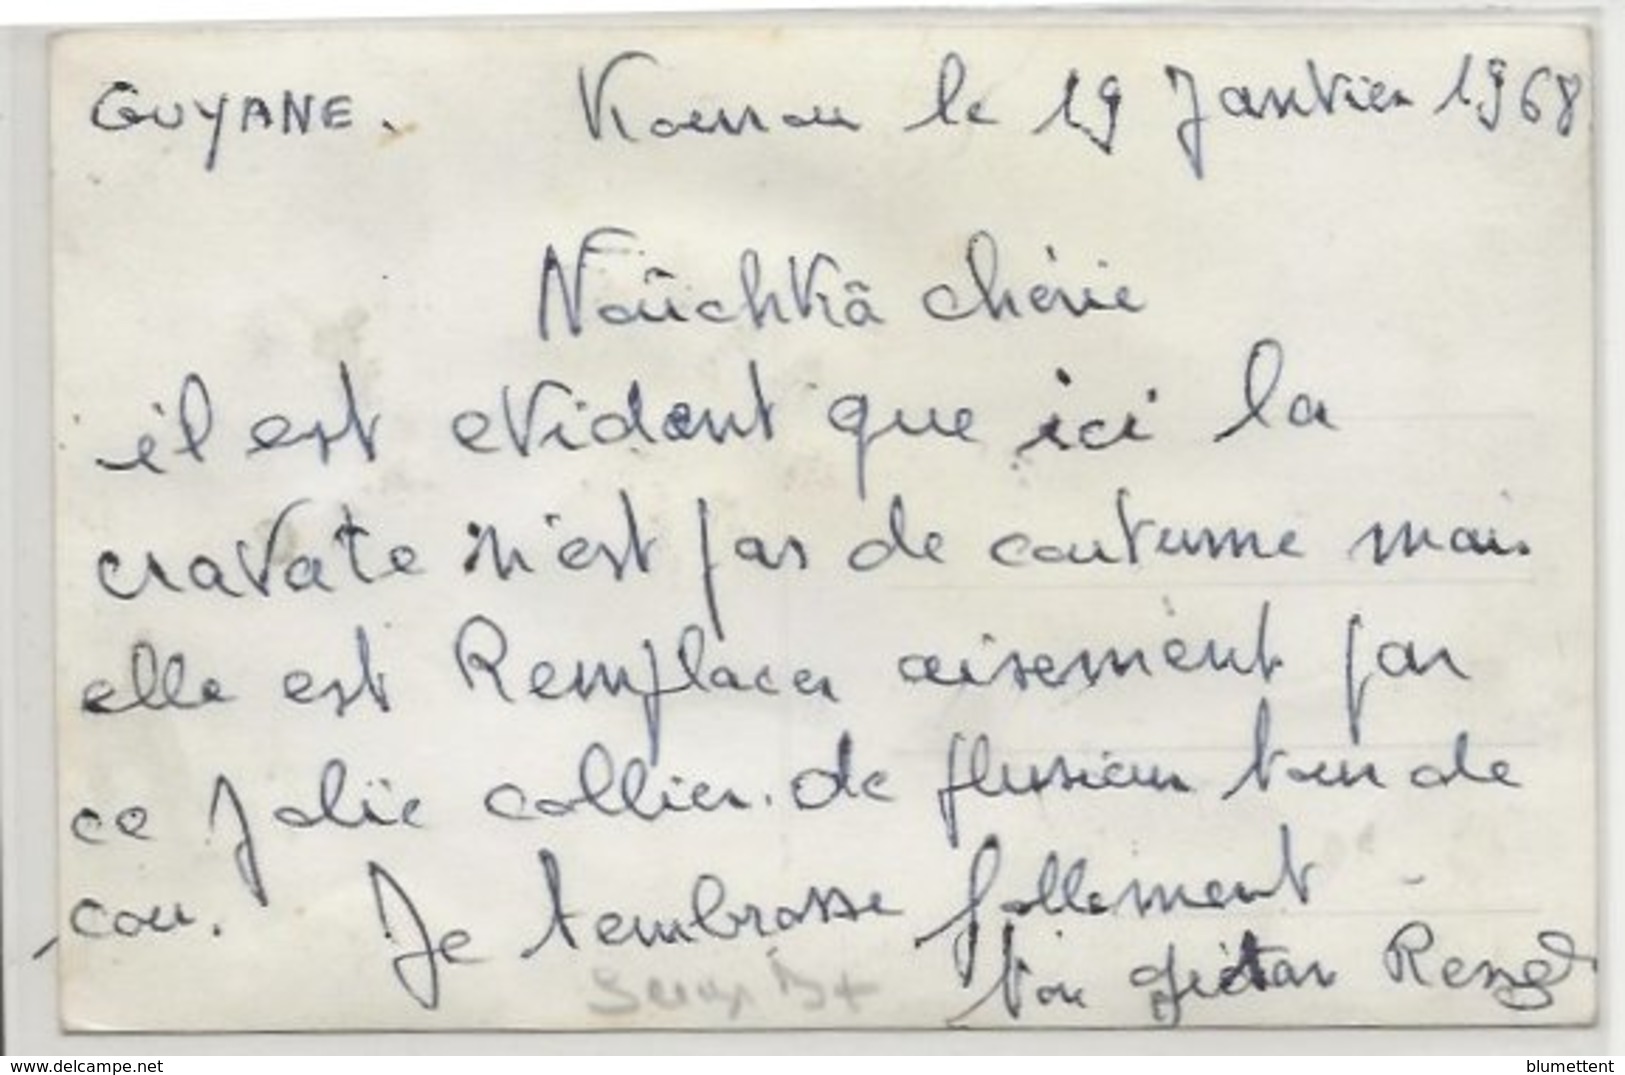 GUYANE. Kourou le 19 Janvier 1968
Noûchkâ chérie
il est evident que ici la
cravate n'est pas de coutume mais
elle est Remplacer aisement par
ce Jolie collier. de plusieur tour de
cou. Je t'embrasse follement
ton
delcampe.net
blumettent